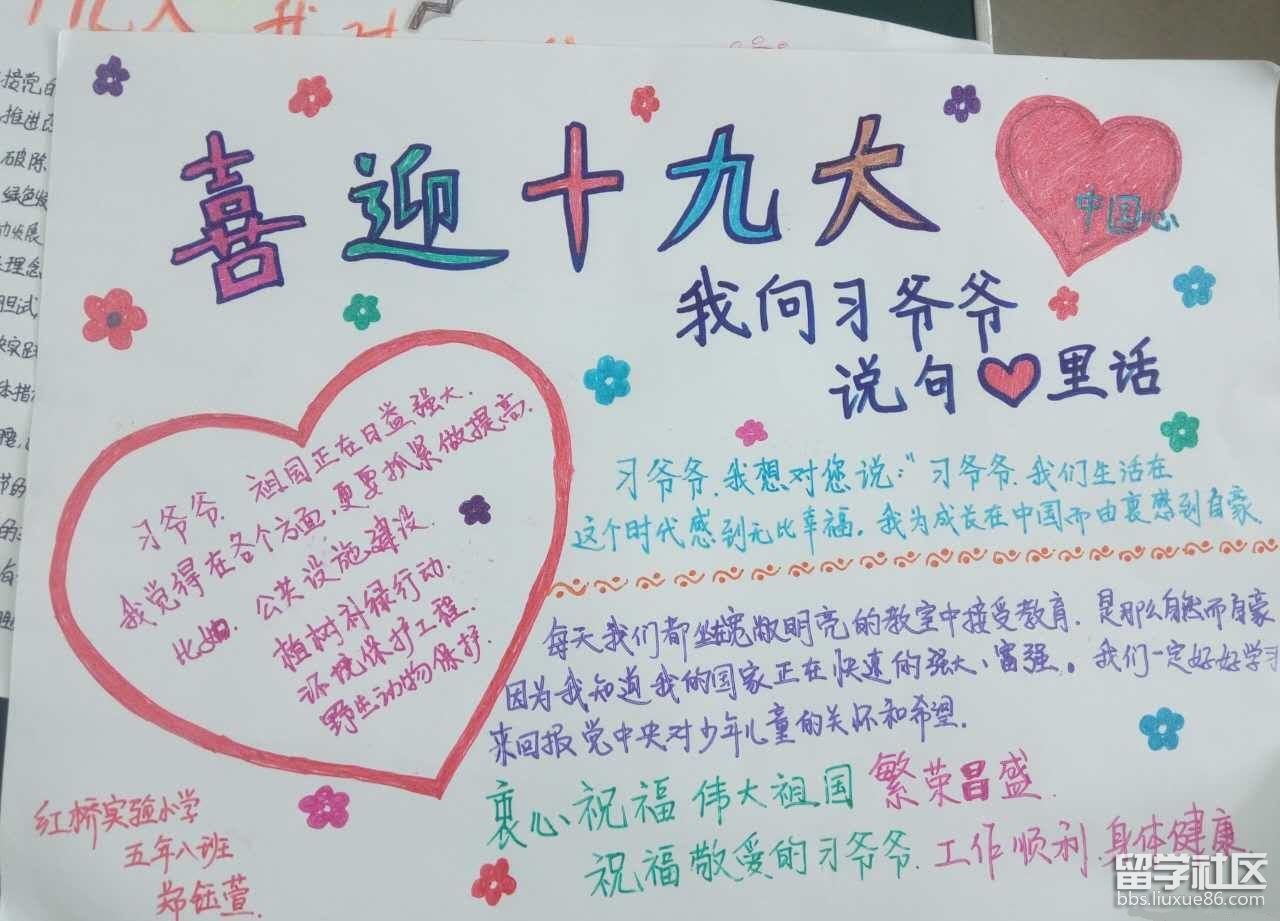 喜迎十九大
中国心
我向习爷爷
说句里话
习爷爷、祖国正在日益强大.
我觉得在各个方面,更要抓紧做提高.
比如. 公共设施建设.
植树补绿行动.
环境保护工程.
野生动物保护.
习爷爷.我想对您说:“习爷爷.我们生活在
这个时代感到无比幸福. 我为成长在中国而由衷感到自豪
每天我们都坐在宽敞明亮的教室中接受教育. 是那么自然而自豪
因为我知道我的国家正在快速的强大、富强。我们一定好好学习
来回报党中央对少年儿童的关怀和希望.
衷心祝福伟大祖国繁荣昌盛.
祝福敬爱的习爷爷.工作顺利.身体健康.
红桥实验小学
五年八班
郑钰萱.
接党的
推进改
破除
绿色发
动发展
理念
胆试
决策
体措
节的
的
留学社区
bbs.liuxue86.com